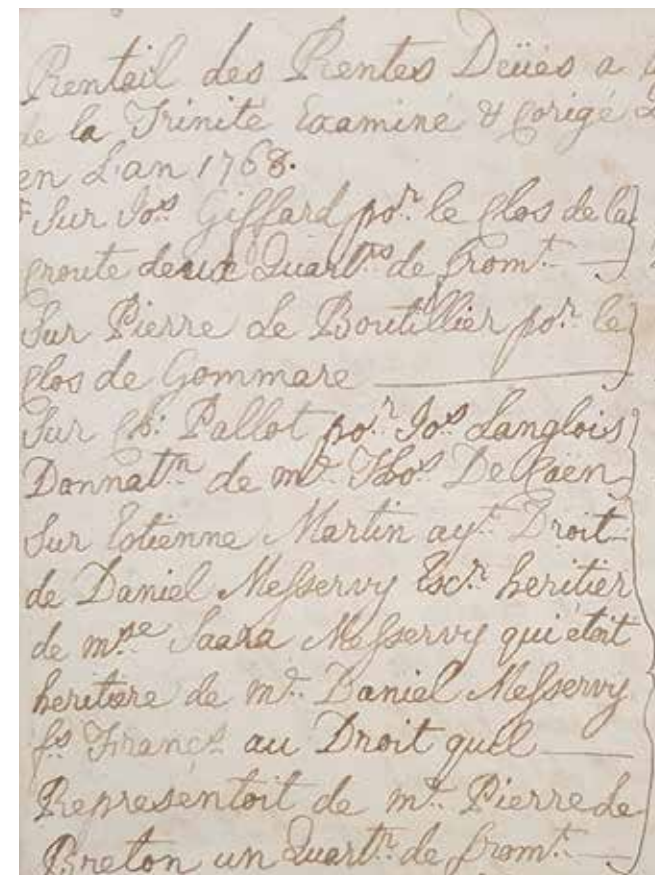 Rentail des Rentes Deües a
de la Trinité Examiné & Corigé
en L'an 1768.
Sur Jos Giffard por. le Clos de la
Croute deux Quartrs de from.t
Sur Pierre Le Boutillier por. le
Clos de Gommare
Sur Ph: Pallot por. Jos Langlois
Donnat.n de mr. Thos De Caën
Sur Estienne Martin ayt. Droit
de Daniel Messervy Escr. heritier
de mse Saara Messervy qui étoit
heritiere de mr. Daniel Messervy
fs Françs. au Droit quel
Representoit de mr. Pierre de
Breton un Quartr. de from.t